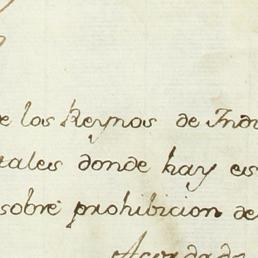 e los Reynos de Indi
tales donde hay es
sobre prohibicion de
Acordado